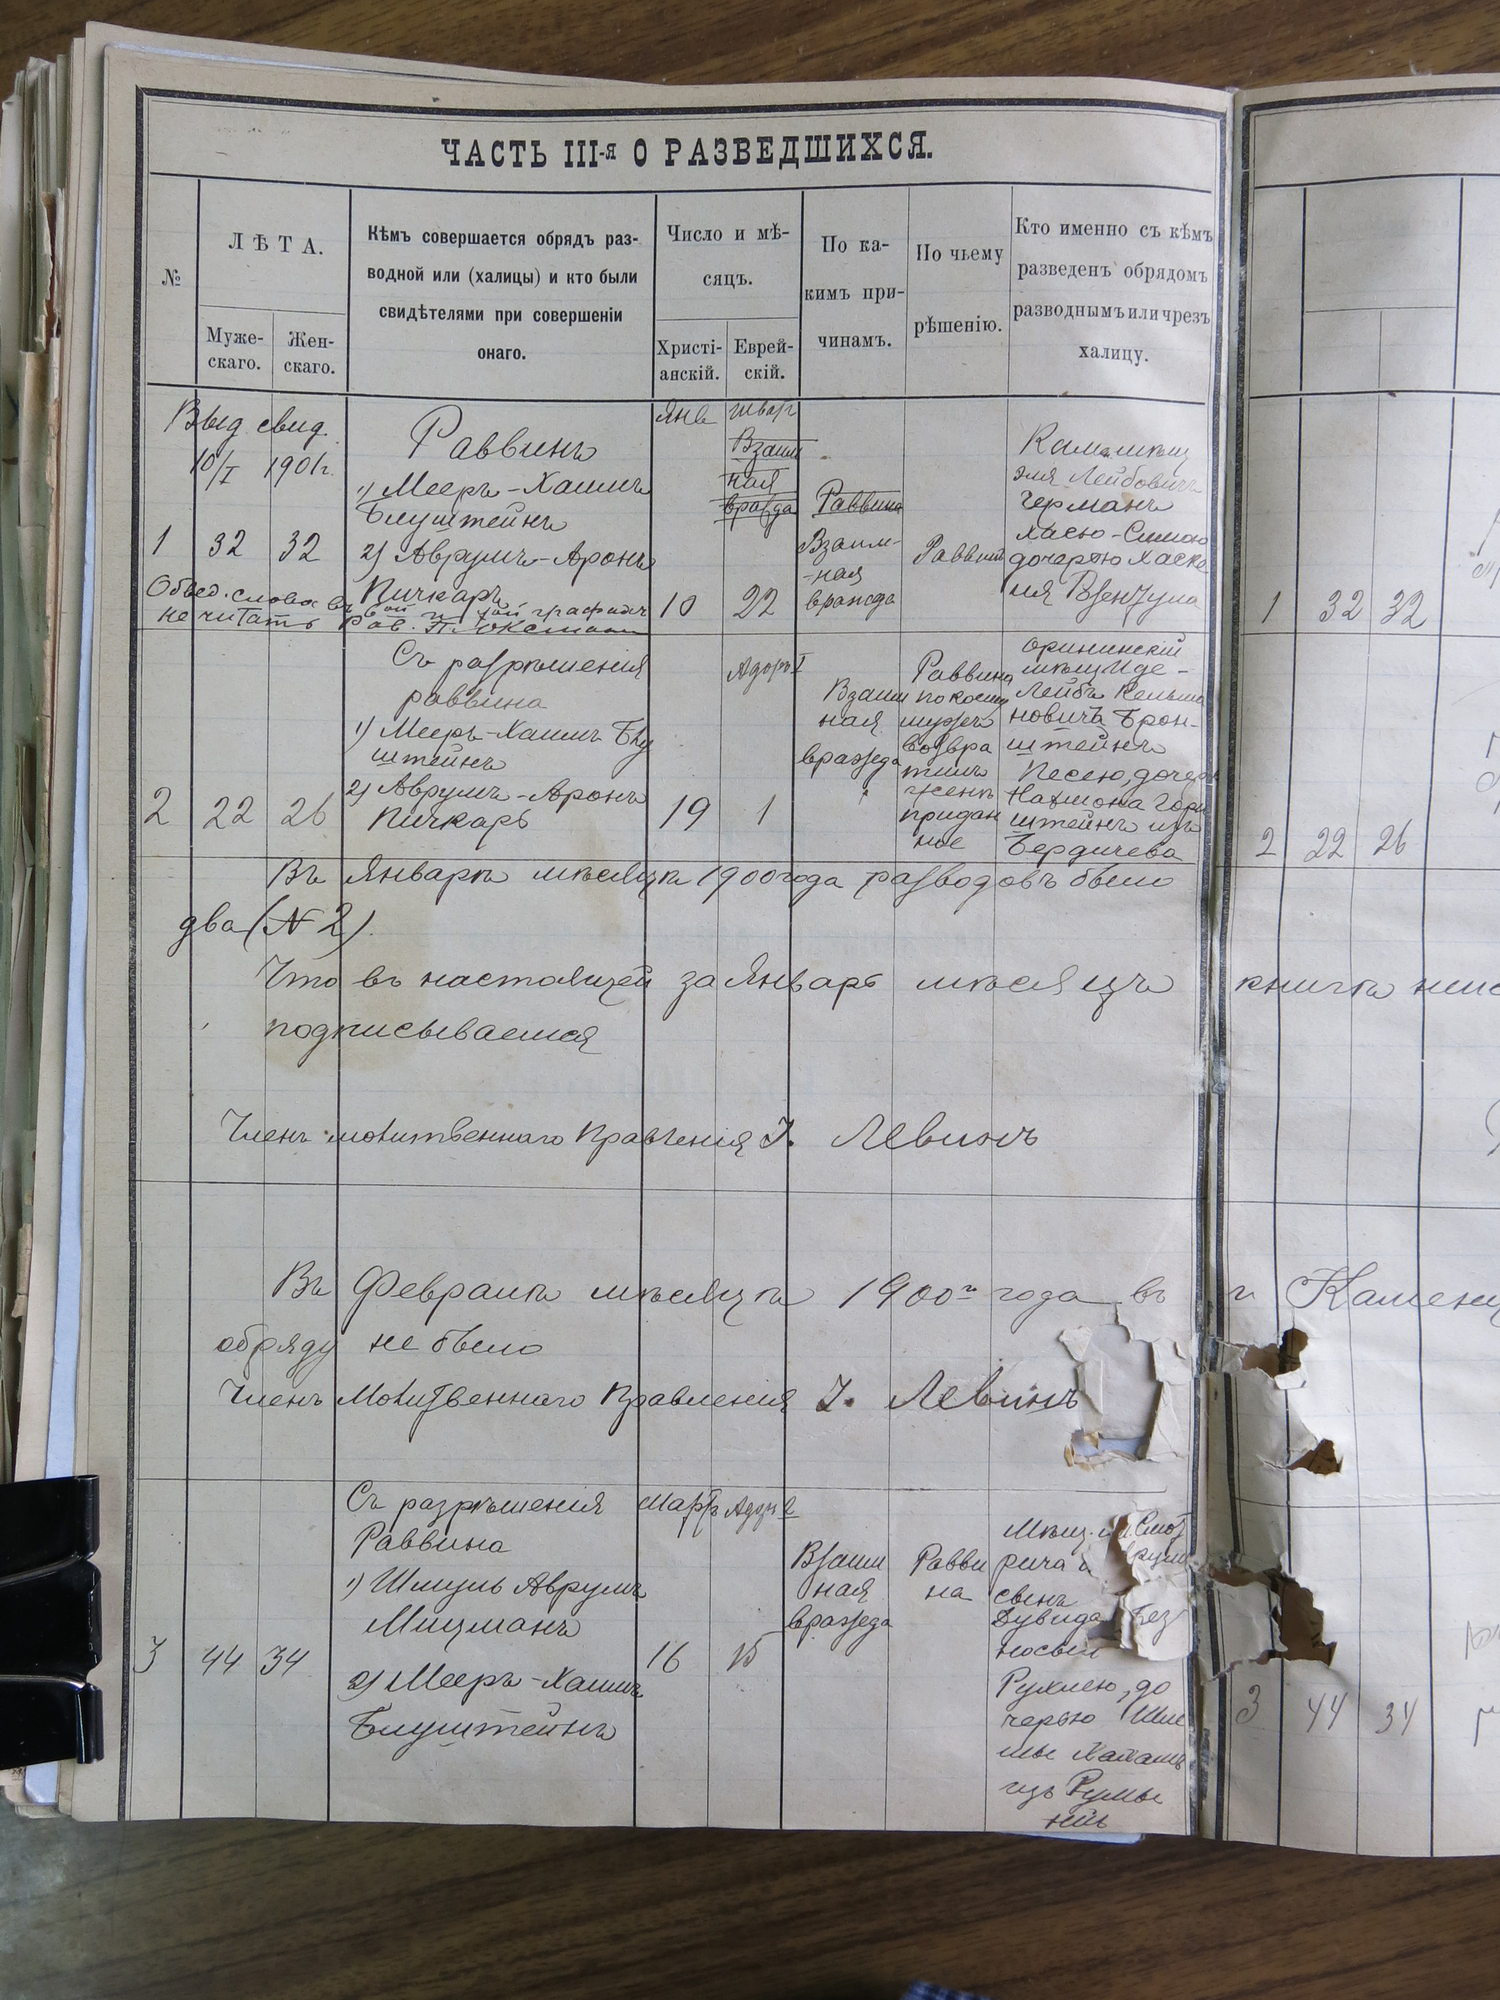 ЧАСТЬ III-я О РАЗВЕДШИХСЯ.
№
ЛѢТА.
Муже-
скаго.
Жен-
скаго.
Кѣмъ совершается обрядъ раз-
водной или (халицы) и кто были
свидѣтелями при совершеніи
онаго.
Число и мѣ-
сяцъ.
Христі-
анскій.
Еврей-
скій.
По ка-
кимъ при-
чинамъ.
По чьему
рѣшенію.
Кто именно съ кѣмъ
разведенъ обрядомъ
разводнымъ или чрезъ
халицу.
Выд свид
10/I 1901г.
1 32 32
Раввинъ
1) Мееръ-Хаимъ
Блуштейнъ
2) Аврумъ-Аронъ
Пичкарь
Янв
10
22
Взаим
ная
вражда
Раввина
Взаим-
-ная
вражда
Раввинъ
Лейбовичъ
Германъ
Хасею-Симою
дочерью Хаске
не читать
1 32 32
2 22 26
Съ разрѣшенія
раввина
1) Мееръ-Хаимъ Блу
штейнъ
2) Аврумъ-Аронъ
Пичкарь
19
Адоръ I
1
Взаим
ная
вражда
Раввина
возвра
тилъ
женѣ
придан
ное
орининскій
мѣщ Иде-
Лейба Кельма
новичъ Брон-
штейнъ
Песею, дочерь
Нахмона Горн
штейнъ изъ
Бердичева
2 22 26
Въ Январѣ мѣсяцѣ 1900 года разводовъ было
два (№ 2).
Что въ настоящей за Январь мѣсяцъ книгѣ
подписываемся
Членъ молитвеннаго Правленія І. Левинъ
Въ Февралѣ мѣсяцѣ 1900 года въ г Каменц
обряду не было
Членъ Молитвеннаго Правленія І. Левинъ
3 44 34
Съ разрѣшенія
Раввина
1) Шмуль Аврумъ
Мицманъ
2) Мееръ-Хаимъ
Блуштейнъ
Мартъ
16
Адоръ 2
15
Взаим
ная
вражда
Равви
на
Мѣщ.
рича
сынъ
Дувида Без
носый
Рухлею, до
черью
изъ Румы
ніи
3 44 34